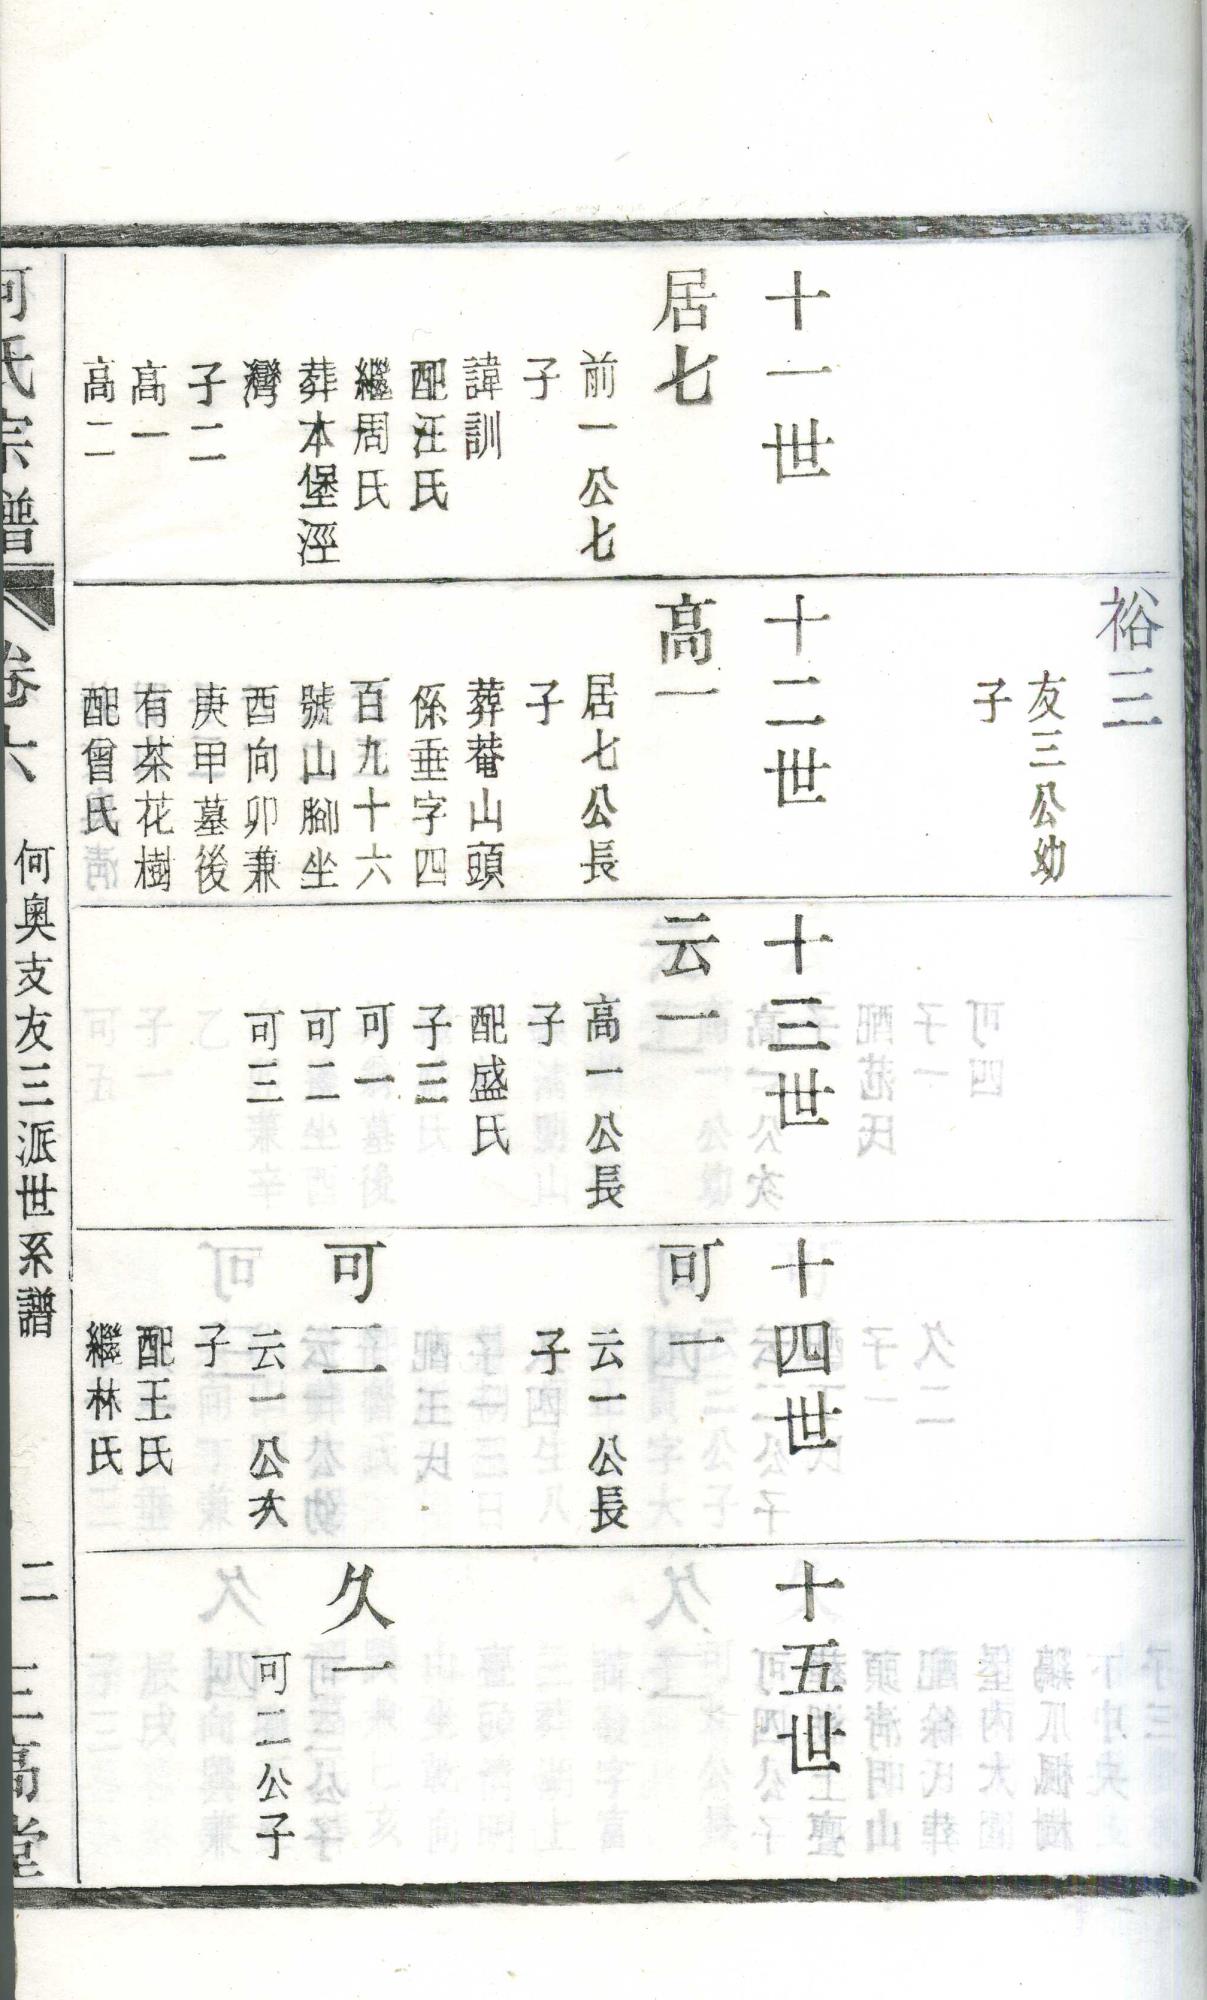 裕三
友三公幼
子
十一世
居七
前一公七
子
諱訓
配汪氏
繼周氏
葬本堡涇
灣
子二
高一
高二
十二世
高一
居七公長
子
葬菴山頭
係垂字四
百九十六
號山腳坐
酉向卯兼
庚甲墓後
有茶花樹
配曾氏
十三世
云一
高一公長
子
配盛氏
子三
可一
可二
可三
十四世
可一
云一公長
子
可二
云一公次
子
配王氏
繼林氏
十五世
久一
可二公子
何氏宗譜
卷六
何奧支友三派世系譜
二
三高堂